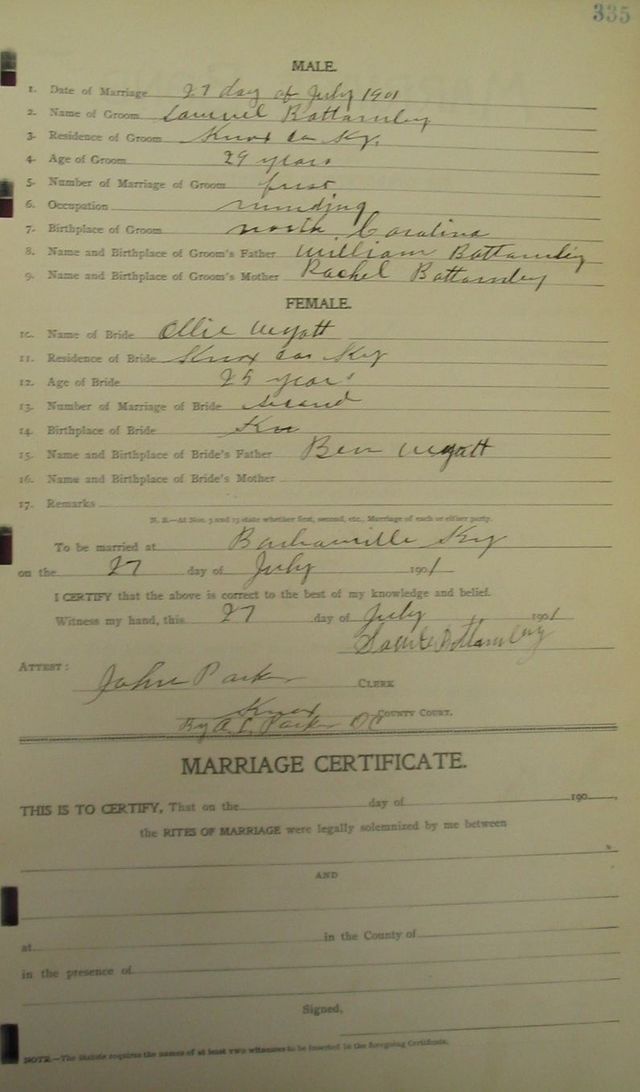 335
MALE.
1. Date of Marriage 27 day of July 1901
2. Name of Groom Samuel Bottamley
3. Residence of Groom Knox Co Ky.
4. Age of Groom 29 years
5. Number of Marriage of Groom first
6. Occupation
7. Birthplace of Groom north Carolina
8. Name and Birthplace of Groom's Father William Bottamley
9. Name and Birthplace of Groom's Mother Rachel Bottamley
FEMALE.
10. Name of Bride Ollie Wyatt
11. Residence of Bride Knox Co Ky
12. Age of Bride 25 years
13. Number of Marriage of Bride second
14. Birthplace of Bride
15. Name and Birthplace of Bride's Father Ben Wyatt
16. Name and Birthplace of Bride's Mother
17. Remarks
N. B.—At Nos. 5 and 13 state whether first, second, etc., Marriage of each or either party.
To be married at Ky
on the 27 day of July 1901
I CERTIFY that the above is correct to the best of my knowledge and belief.
Witness my hand, this 27 day of July 1901
Bottamley
ATTEST: John Parker CLERK
Knox COUNTY COURT.
By A. L. Parker DC
MARRIAGE CERTIFICATE.
THIS IS TO CERTIFY, That on the day of 190
the RITES OF MARRIAGE were legally solemnized by me between
AND
at in the County of
in the presence of
Signed,
NOTE.—The Statute requires the names of at least two witnesses to be inserted in the foregoing Certificate.